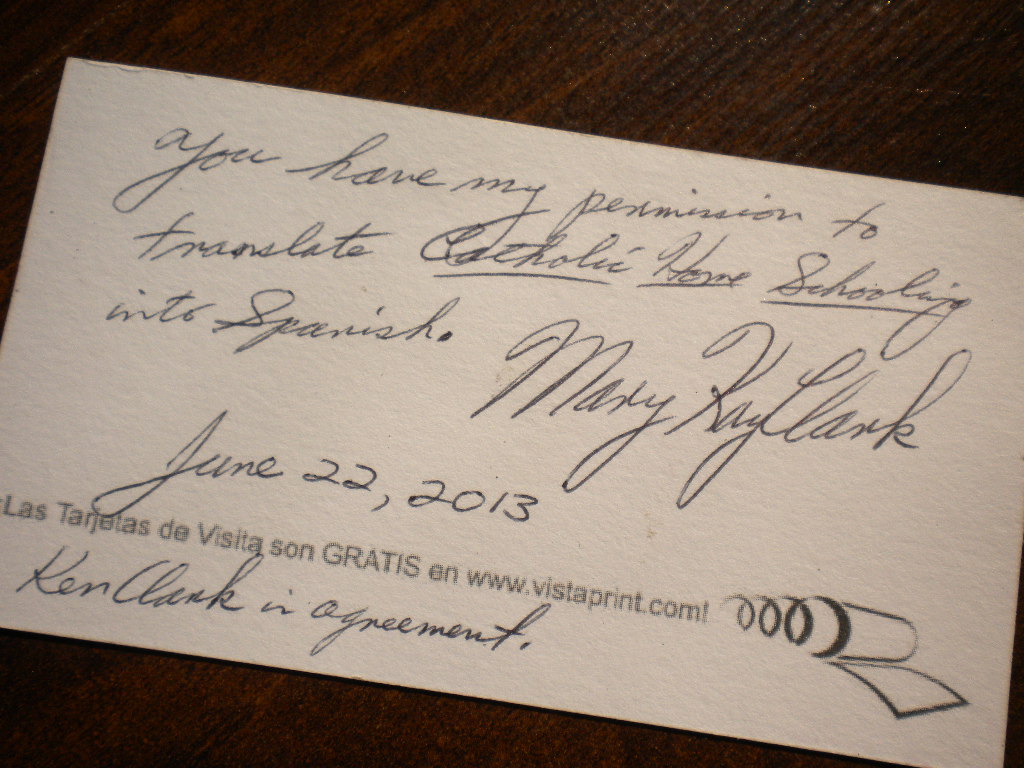 You have my permission to
translate Catholic Home Schooling
into Spanish.
Mary Kay Clark
June 22, 2013
Las Tarjetas de Visita son GRATIS en www.vistaprint.com!
Ken Clark in agreement.